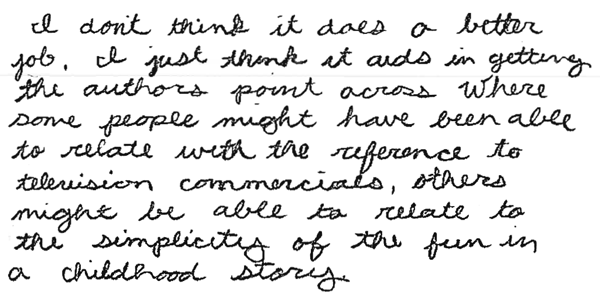 I don't think it does a better
job. I just think it aids in getting
the authors point across Where
some people might have been able
to relate with the reference to
television commercials, others
might be able to relate to
the simplicity of the fun in
a childhood story.